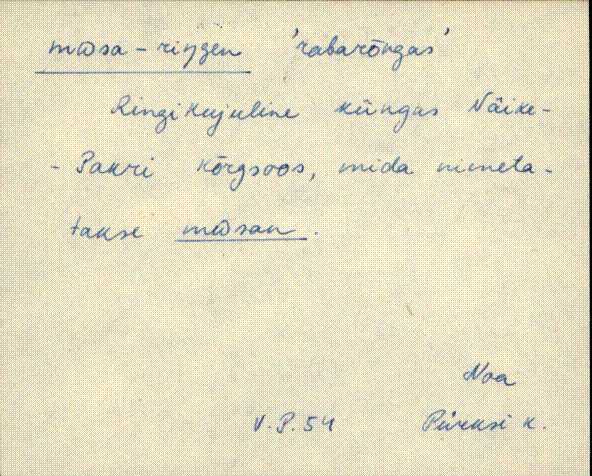 mɷsa-riŋgen 'rabarõngas'
Ringikujuline küngas Väike-
-Pakri kõrgsoos, mida nimeta-
takse mɷsan.
Noa
V.P.54 Pürksi k.